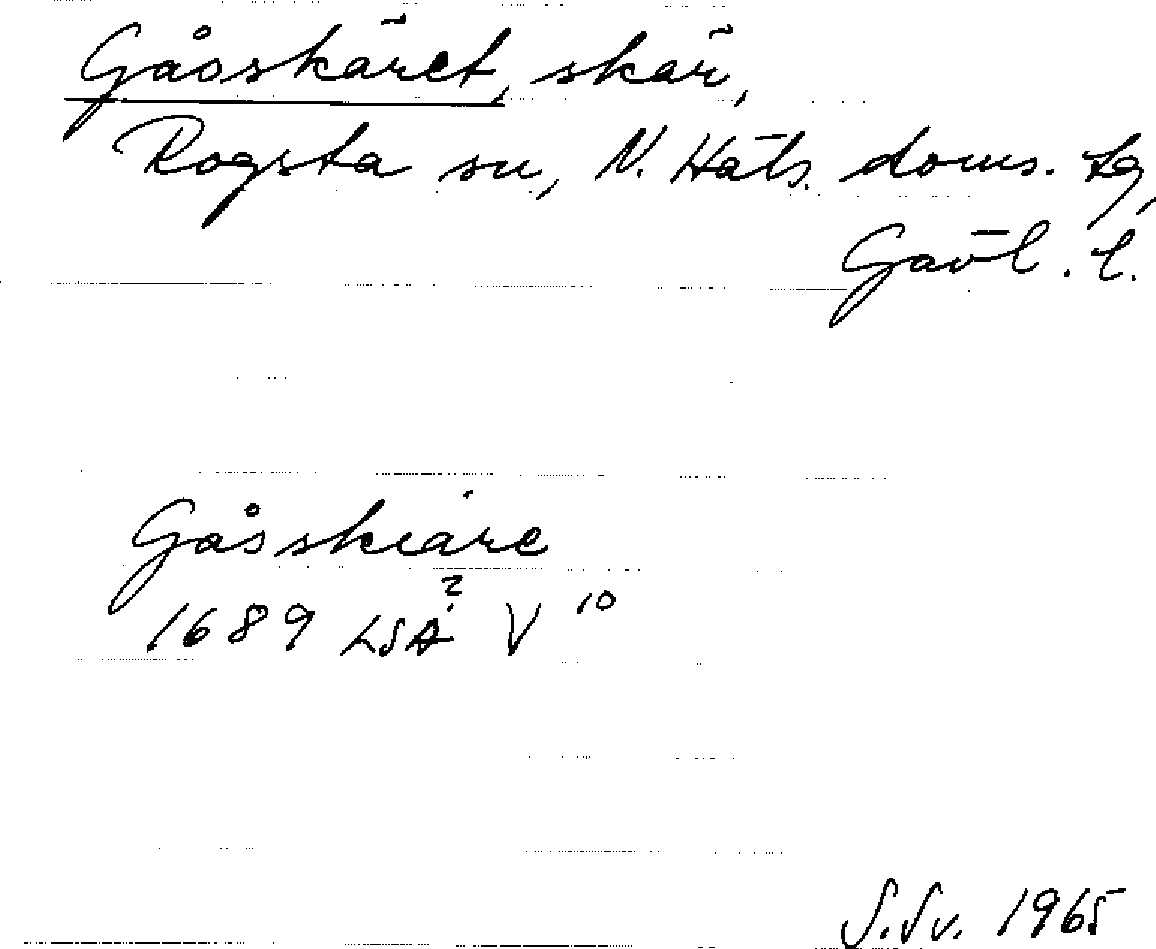 Gåsskäret, skär,
Rogsta sn, N. Häls. doms. tg,
Gävl. l.
Gåsskiäre
1689 LSA² V 10
S.Sv. 1965